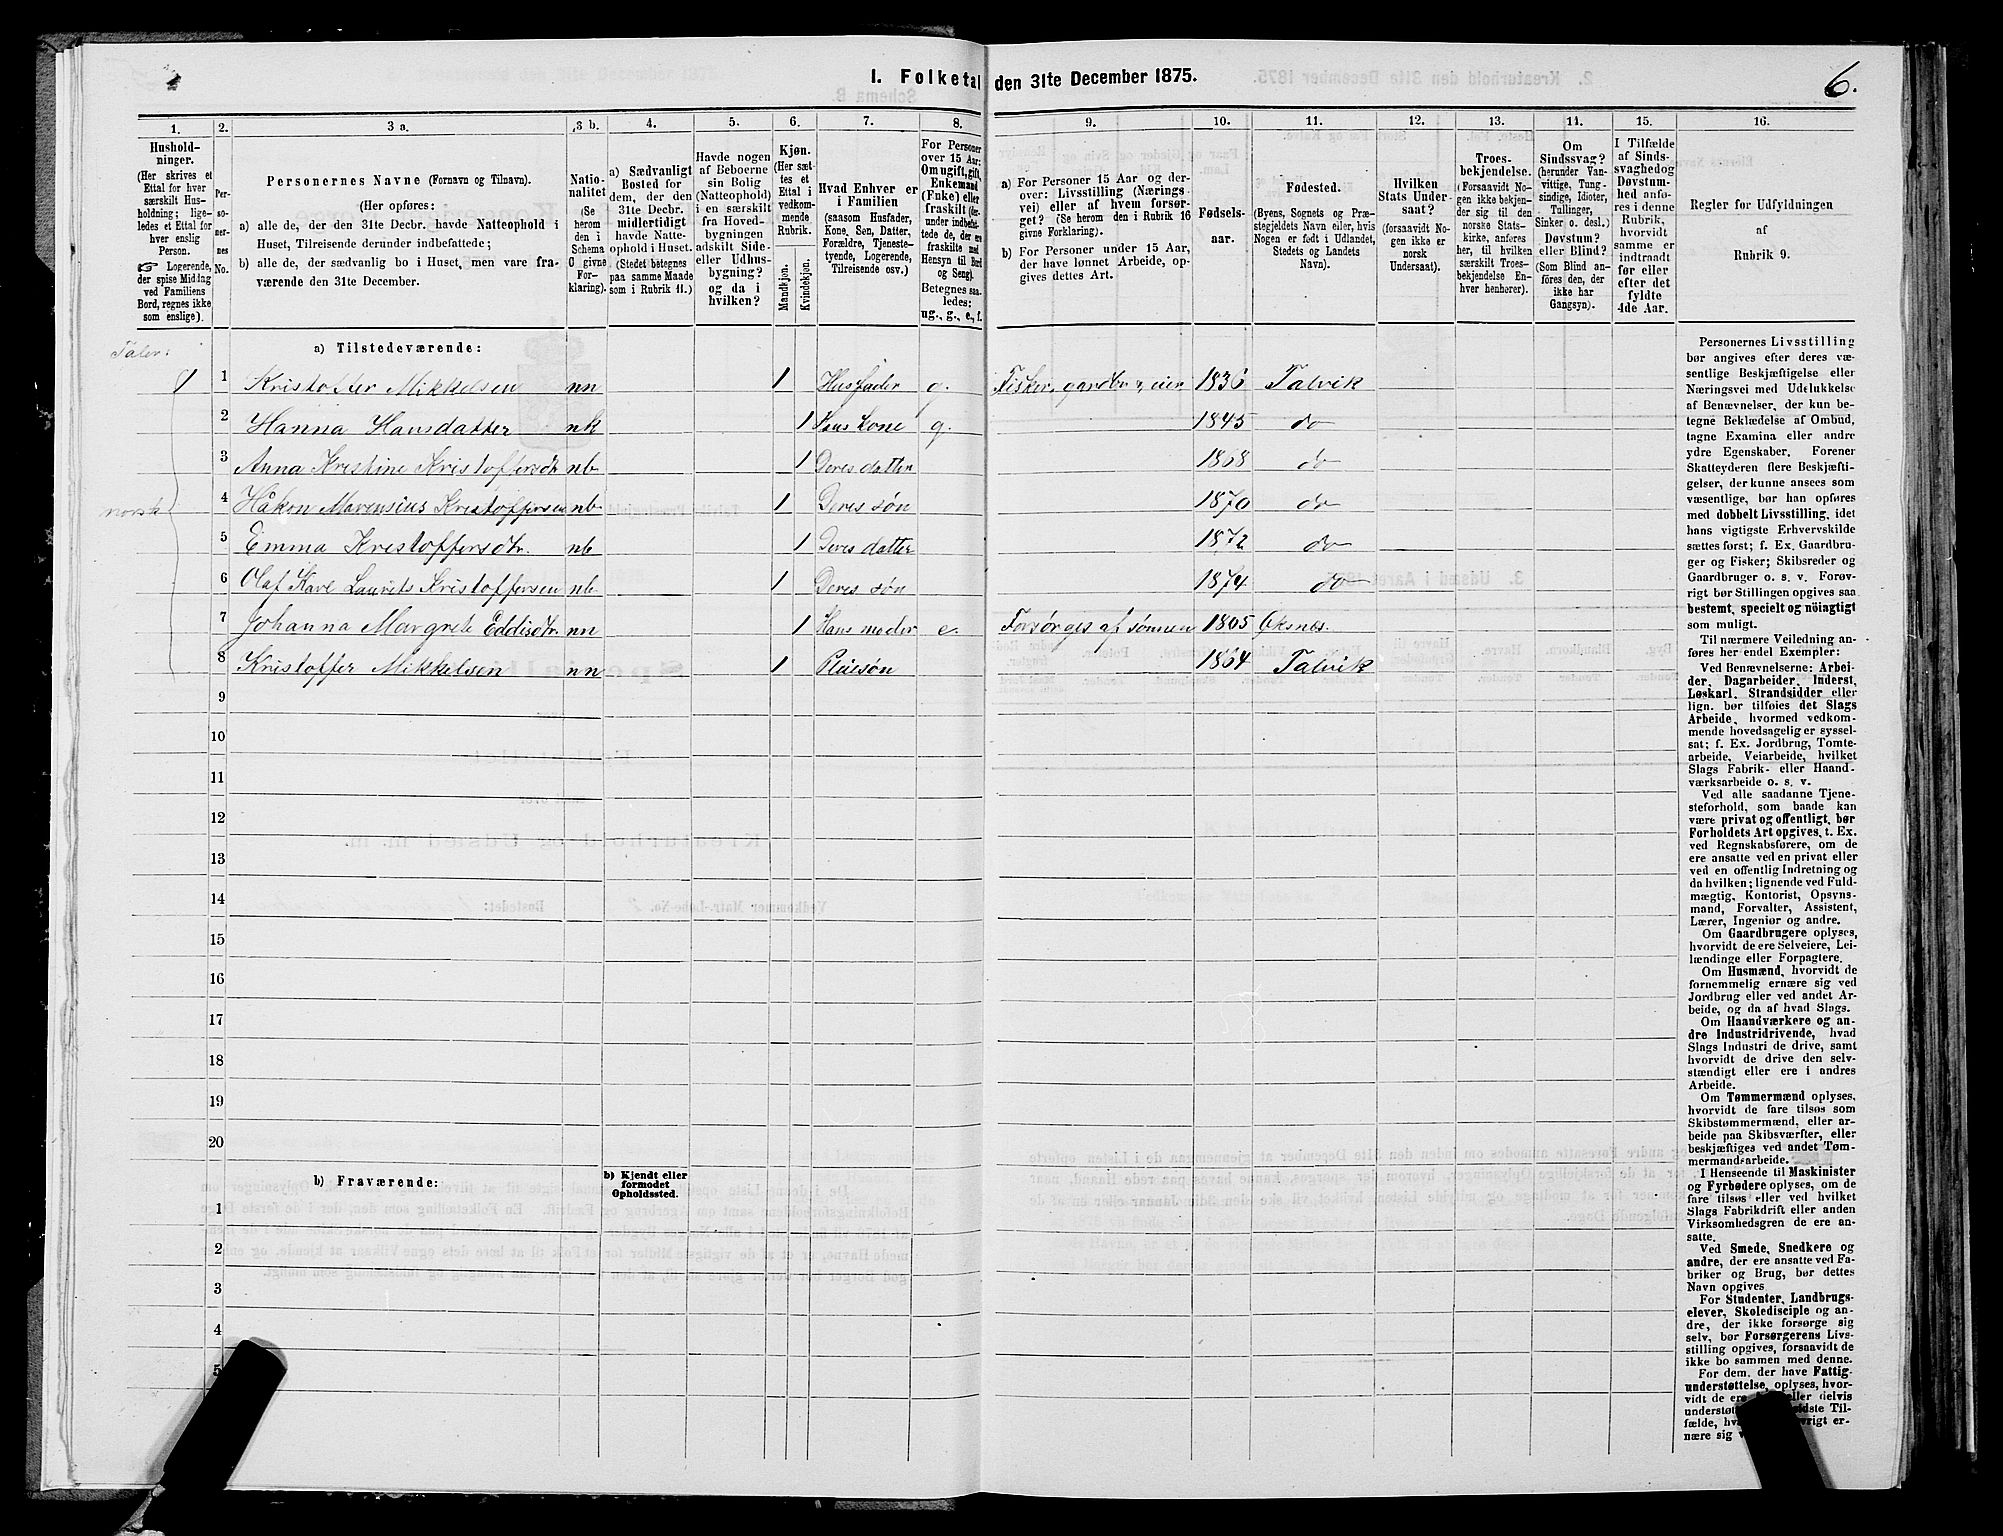 I. Folketal den 31te December 1875.
6.
1.
Hushold-
ninger.
(Her skrives et
Ettal for hver
særskilt Hus-
holdning; lige-
ledes et Ettal for
hver enslig
Person.
Logerende,
der spise Middag
ved Familiens
Bord, regnes ikke
som enslige).
2.
Per-
so-
ner-
nes
No.
3 a.
Personernes Navne (Fornavn og Tilnavn).
(Her opføres:
a) alle de, der den 31te Decbr. havde Natteophold i
Huset, Tilreisende derunder indbefattede;
b) alle de, der sædvanlig bo i Huset, men vare fra-
værende den 31te December.
3 b.
Natio-
nalitet
(Se
herom
den i
Schema
C givne
For-
klaring).
4.
a) Sædvanligt
Bosted for
dem, der den
31te Decbr.
midlertidigt
havde Natte-
ophold i Huset.
(Stedet betegnes
paa samme Maade
som i Rubrik 11.)
5.
Havde nogen
af Beboerne
sin Bolig
(Natteophold)
i en særskilt
fra Hoved-
bygningen
adskilt Side-
eller Udhus-
bygning?
og da i
hvilken?
6.
Kjøn.
(Her sæt-
tes et
Ettal i
vedkom-
mende
Rubrik.
Mandkjøn.
Kvindekjøn.
7.
Hvad Enhver er
i Familien
(saasom Husfader,
Kone, Søn, Datter,
Forældre, Tjeneste-
tyende, Logerende,
Tilreisende osv.)
8.
For Personer
over 15 Aar:
Om ugift, gift,
Enkemand
(Enke) eller
fraskilt (der-
under indbefat-
tede de, der ere
fraskilte med
Hensyn til Bord
og Seng).
Betegnes saa-
ledes:
ug., g., e., f.
9.
a) For Personer 15 Aar og der-
over: Livsstilling (Nærings-
vei) eller af hvem forsør-
get? (Se herom den i Rubrik 16
givne Forklaring).
b) For Personer under 15 Aar,
der have lønnet Arbeide, op-
gives dettes Art.
10.
Fødsels-
aar.
11.
Fødested.
(Byens, Sognets og Præ-
stegjeldets Navn eller, hvis
Nogen er født i Udlandet,
Stedets og Landets
Navn).
12.
Hvilken
Stats Under-
saat?
(forsaavidt No-
gen ikke er
norsk
Undersaat).
13.
Troes-
bekjendelse.
(Forsaavidt No-
gen ikke bekjen-
der sig til den
norske Stats-
kirke, anføres
her, til hvilken
særskilt Troes-
bekjendelse En-
hver henhører).
14.
Om
Sindssvag?
(herunder Van-
vittige, Tung-
sindige, Idioter,
Tullinger,
Sinker o. desl.)
Døvstum?
eller Blind?
(Som Blind an-
føres den, der
ikke har
Gangsyn).
15.
I Tilfælde
af Sinds-
svaghedog
Døvstum-
hed anfø-
res i denne
Rubrik,
hvorvidt
samme er
indtraadt
før eller
efter det
fyldte
4de Aar.
16.
Regler for Udfyldningen
af
Rubrik 9.
Taler:
a) Tilstedeværende:
1 1 Kristoffer Mikkelsen nn 1 Husfader g. Fisker, gardbr., eier 1836 Talvik
2 Hanna Hansdatter nk 1 Hans kone g. 1845 do
3 Anna Kristine Kristoffersdtr nb 1 Deres datter 1868 do
norsk 4 Håkon Marensius Kristoffersen nb 1 Deres søn 1870 do
5 Emma Kristoffersdtr. nb 1 Deres datter 1872 do
6 Olaf Kare Laurits Kristoffersen nb 1 Deres søn 1874 do
7 Johanna Margrete Eddisdtr. nn 1 Hans moder e. Forsørges af sønnen 1805 Øksnes.
8 Kristoffer Mikkelsen nn 1 Pleiesøn 1864 Talvik
9
10
11
12
13
14
15
16
17
18
19
20
b) Fraværende:
b) Kjendt eller
formodet
Opholdssted.
1
2
3
4
5
Personernes Livsstilling
bør angives efter deres væ-
sentlige Beskjæftigelse eller
Næringsvei med Udelukkelse
af Benævnelser, der kun be-
tegne Beklædelse af Ombud,
tagne Examina eller andre
ydre Egenskaber. Forener
Skatteyderen flere Beskjæfti-
gelser, der kunne ansees som
væsentlige, bør han opføres
med dobbelt Livsstilling, idet
hans vigtigste Erhvervskilde
sættes først; f. Ex. Gaardbru-
ger og Fisker; Skibsreder og
Gaardbruger o. s. v. Forøv-
rigt bør Stillingen opgives saa
bestemt, specielt og nöiagtigt
som muligt.
Til nærmere Veiledning an-
føres her endel Exempler:
Ved Benævnelserne: Arbei-
der, Dagarbeider, Inderst,
Løskarl, Strandsidder eller
lign. bør tilføies det Slags
Arbeide, hvormed vedkom-
mende hovedsagelig er syssel-
sat; f. Ex. Jordbrug, Tomte-
arbeide, Veiarbeide, hvilket
Slags Fabrik- eller Haand-
værksarbeide o. s. v.
Ved alle saadanne Tjene-
steforhold, som baade kan
være privat og offentligt, bør
Forholdets Art opgives, t. Ex.
ved Regnskabsførere, om de
ere ansatte ved en privat eller
ved en offentlig Indretning og
da hvilken; lignende ved Fuld-
mægtig, Kontorist, Opsyns-
mand, Forvalter, Assistent,
Lærer, Ingeniør og andre.
Om Gaardbrugere oplyses,
hvorvidt de ere Selveiere, Lei-
lændinge eller Forpagtere.
Om Husmænd, hvorvidt de
fornemmelig ernære sig ved
Jordbrug eller ved andet Ar-
beide, og da af hvad Slags.
Om Haandværkere og an-
dre Industridrivende, hvad
Slags Industri de drive, samt
hvorvidt de drive den selv-
stændigt eller ere i andres
Arbeide.
Om Tømmermænd oplyses,
hvorvidt de fare tilsøs som
Skibstømmermænd, eller ar-
beide paa Skibsværfter, eller
beskjæftiges ved andet Tøm-
mermandsarbeide.
I Henseende til Maskinister
og Fyrbødere oplyses, om de
fare tilsøs eller ved hvilket
Slags Fabrikdrift eller anden
Virksomhedsgren de ere an-
satte.
Ved Smede, Snedkere og
andre, der ere ansatte ved Fa-
briker og Brug, bør dettes
Navn opgives
For Studenter, Landbrugs-
elever, Skoledisciple og an-
dre, der ikke forsørge sig
selv, bør Forsørgerens Livs-
stilling opgives, forsaavidt de
ikke bo sammen med denne.
For dem, der have Fattig-
understøttelse, oplyses, hvor-
vidt de ere eller delvis
understøt sidste Til-
fælde, hv vrigt er-
nære sig